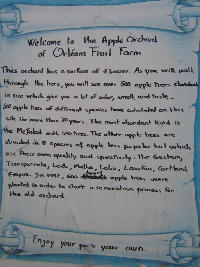 Welcome to the Apple Orchard
of Orléans Fruit Farm
This orchard has a surface of 7 acres. As you will walk
through the trees, you will see over 500 apple trees standard
in size which give you a lot of color, smell and taste.
500 apple trees of different species have cohabited on this
site for more than 70 years. The most abundant kind is
the McIntosh with 400 trees. The other apple trees are
divided in 8 species of apple less popular but which
are their own quality and specificity. The Gesham,
Transparente, Lodi, Melba, Lobo, Lawfam, Cortland
Empire. In 1992, 600 apple trees were
planted in order to start a renovation process for
the old orchard.
Enjoy your pick your own.